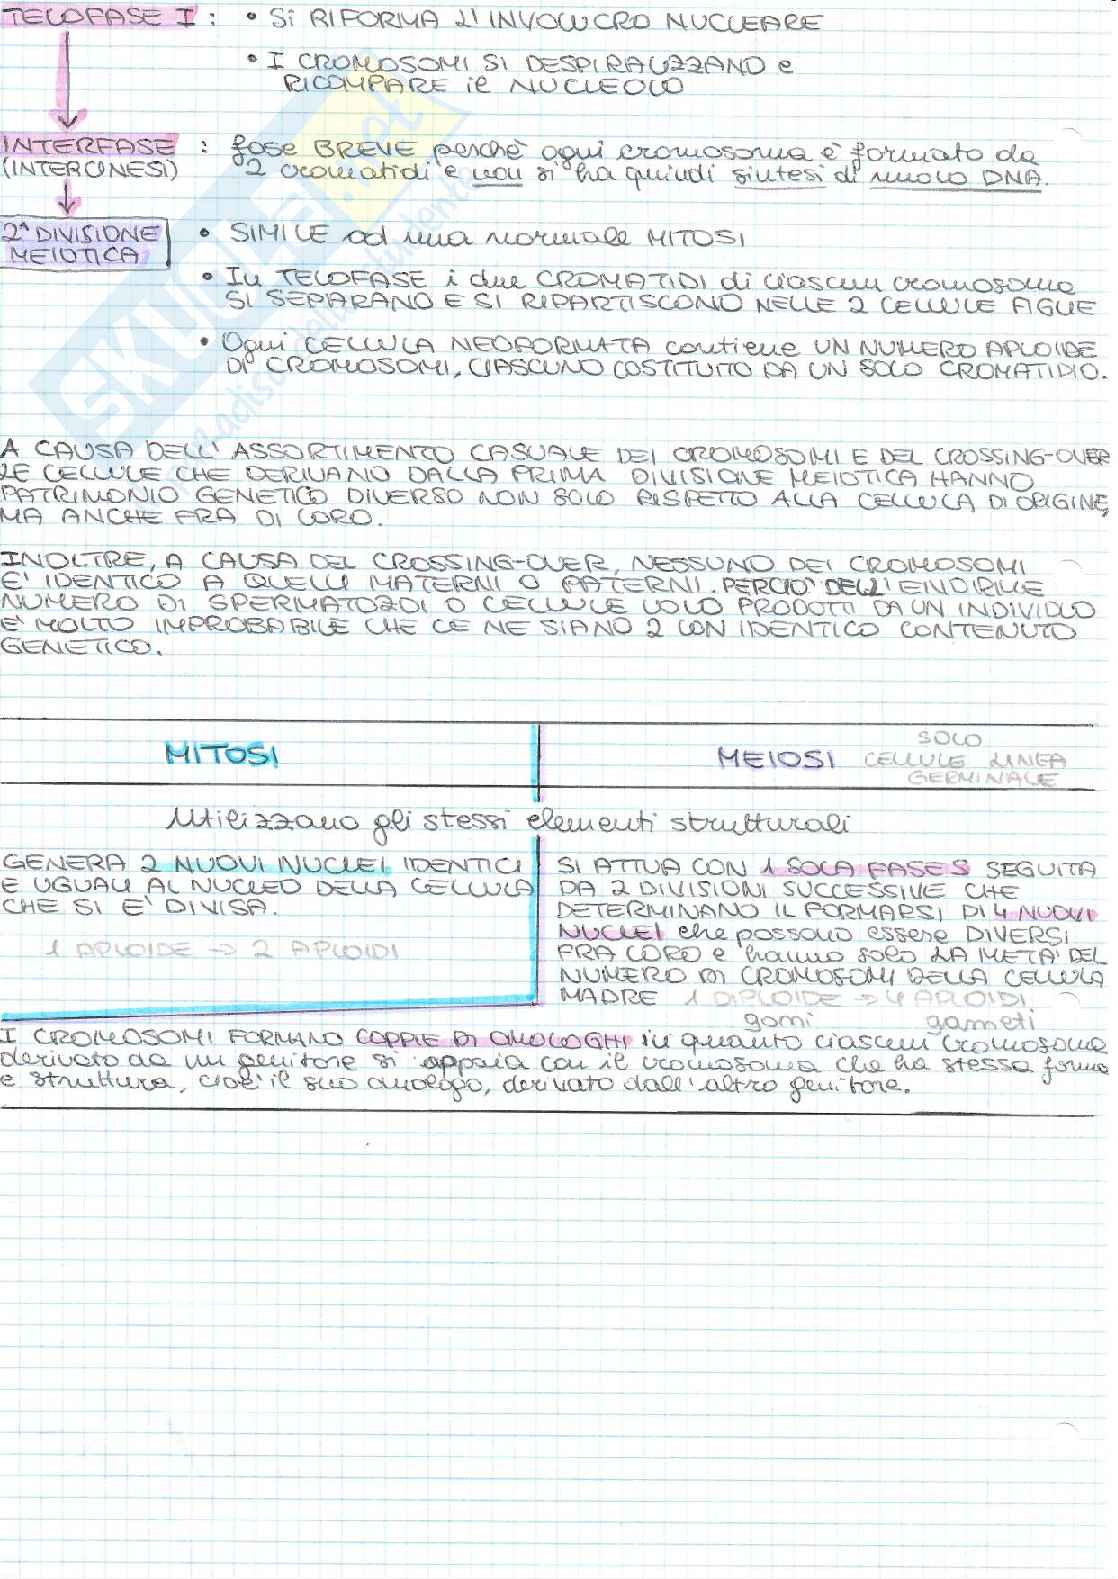 TELOFASE I : • Si RIFORMA L'INVOLUCRO NUCLEARE
• I CROMOSOMI SI DESPIRALIZZANO e
RICOMPARE il NUCLEOLO
INTERFASE : fase BREVE perchè ogni cromosoma è formato da
(INTERCINESI) 2 cromatidi e non si ha quindi sintesi di nuovo DNA.
2ª DIVISIONE • SIMILE ad una normale MITOSI
MEIOTICA
• In TELOFASE i due CROMATIDI di ciascun cromosoma
SI SEPARANO E SI RIPARTISCONO NELLE 2 CELLULE FIGLIE
• Ogni CELLULA NEOFORMATA contiene UN NUMERO APLOIDE
DI CROMOSOMI, CIASCUNO COSTITUITO DA UN SOLO CROMATIDIO.
A CAUSA DELL'ASSORTIMENTO CASUALE DEI CROMOSOMI E DEL CROSSING-OVER
LE CELLULE CHE DERIVANO DALLA PRIMA DIVISIONE MEIOTICA HANNO
PATRIMONIO GENETICO DIVERSO NON SOLO RISPETTO ALLA CELLULA DI ORIGINE,
MA ANCHE FRA DI LORO.
INOLTRE, A CAUSA DEL CROSSING-OVER, NESSUNO DEI CROMOSOMI
E' IDENTICO A QUELLI MATERNI O PATERNI. PERCIO' DELL'ENORME
NUMERO DI SPERMATOZOI O CELLULE UOVO PRODOTTI DA UN INDIVIDUO
E' MOLTO IMPROBABILE CHE CE NE SIANO 2 CON IDENTICO CONTENUTO
GENETICO.
MITOSI
MEIOSI SOLO
CELLULE LINEA
GERMINALE
Utilizzano gli stessi elementi strutturali
GENERA 2 NUOVI NUCLEI IDENTICI
E UGUALI AL NUCLEO DELLA CELLULA
CHE SI E' DIVISA.
1 APLOIDE → 2 APLOIDI
SI ATTUA CON 1 SOLA FASE S SEGUITA
DA 2 DIVISIONI SUCCESSIVE CHE
DETERMINANO IL FORMARSI DI 4 NUOVI
NUCLEI che possono essere DIVERSI
FRA LORO e hanno solo LA META' DEL
NUMERO DI CROMOSOMI DELLA CELLULA
MADRE 1 DIPLOIDE → 4 APLOIDI
goni gameti
I CROMOSOMI FORMANO COPPIE DI OMOLOGHI in quanto ciascun cromosoma
derivato da un genitore si appaia con il cromosoma che ha stessa forma
e struttura, cioè il suo omologo, derivato dall'altro genitore.
SKUOLA.net